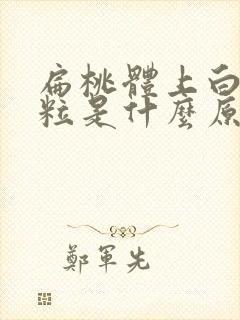 扁桃體上白
粒是什麼原
鄭軍先